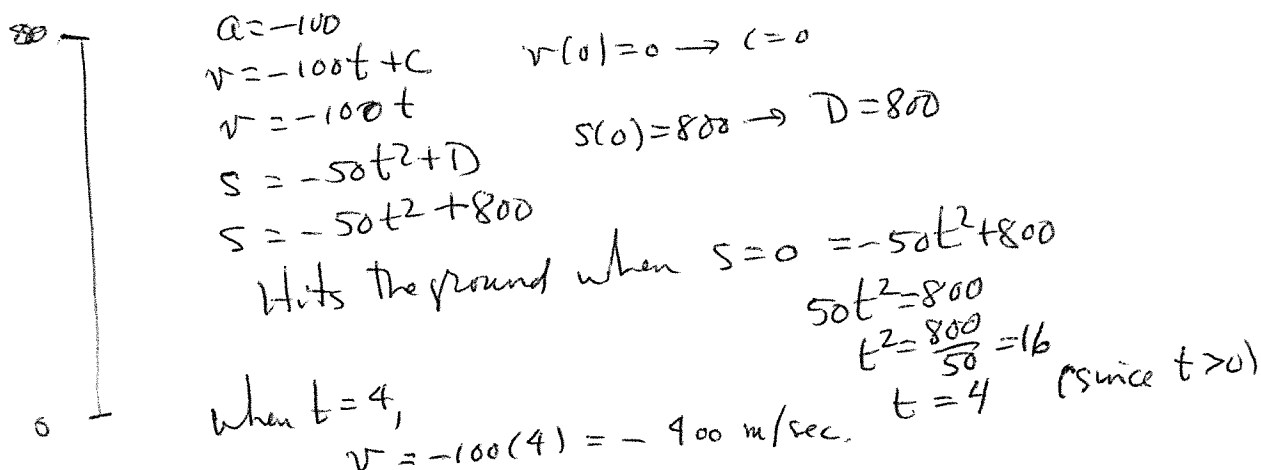 80
a=-100
v=-100t+C
v(0)=0 → C=0
v=-100t
s(0)=800 → D=800
s=-50t²+D
s=-50t²+800
Hits the ground when s=0 =-50t²+800
50t²=800
t²=800/50=16
t=4 (since t>0)
0
when t=4,
v=-100(4)=-400 m/sec.